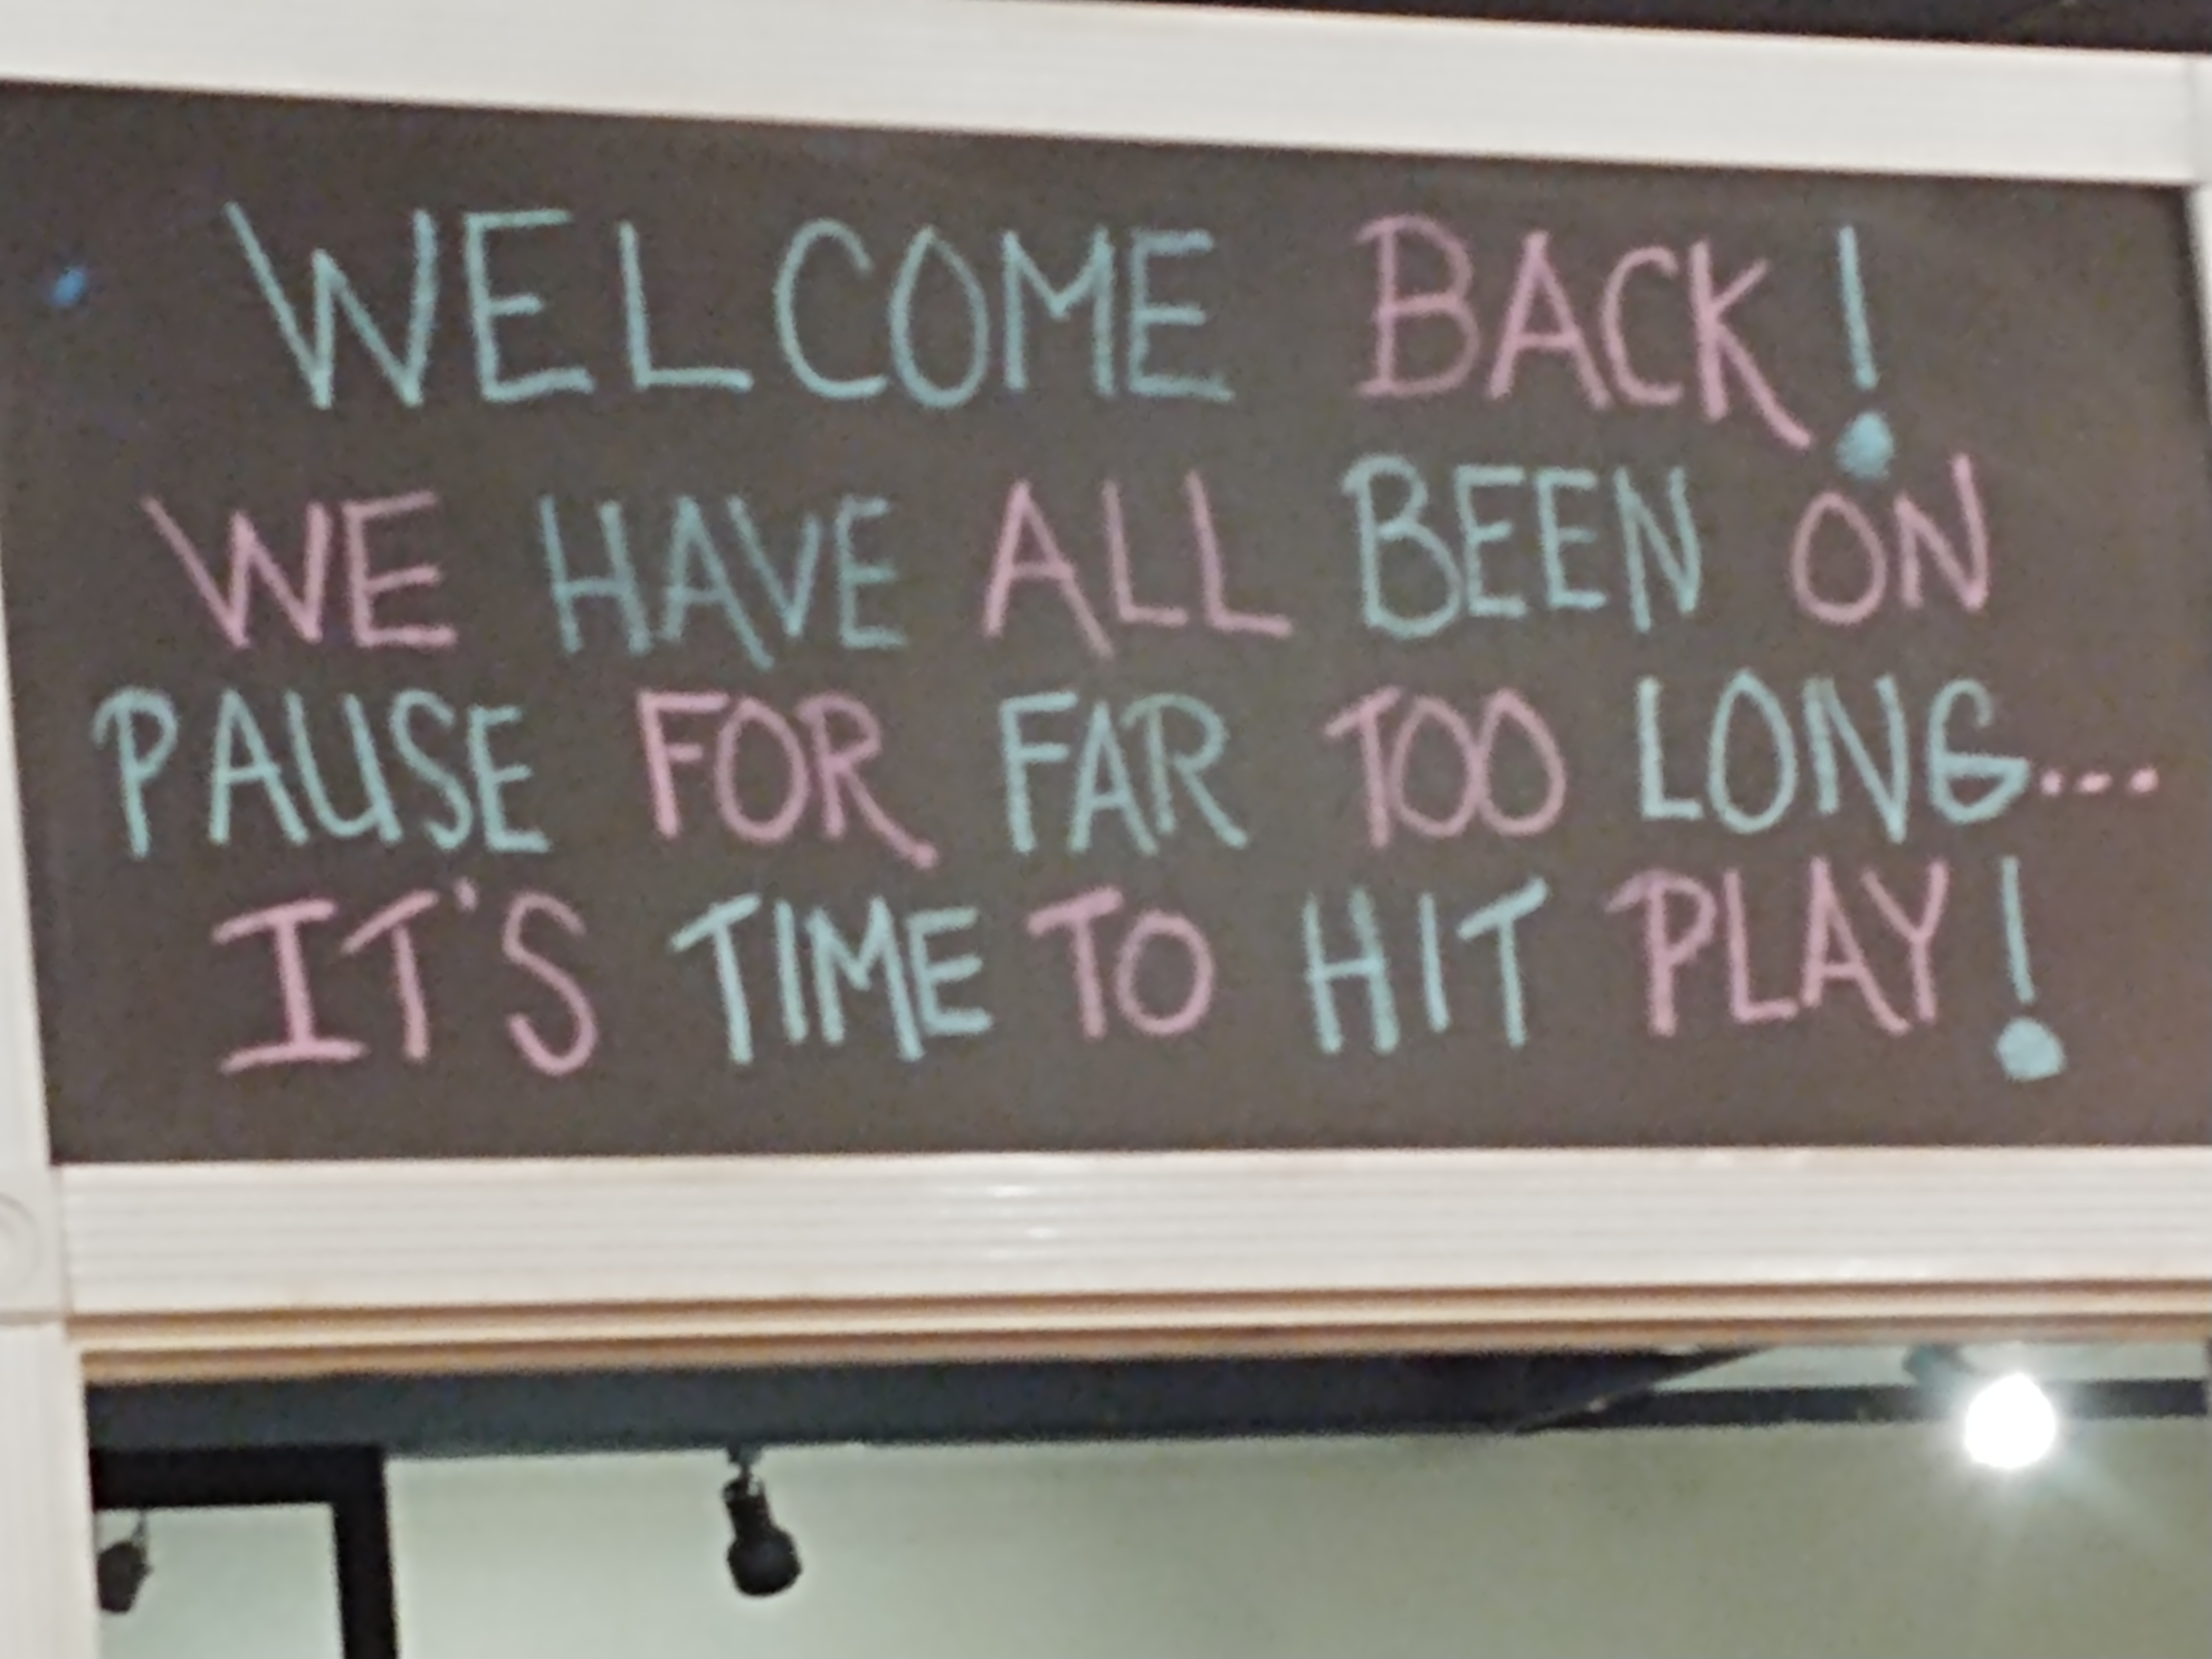 WELCOME BACK!
WE HAVE ALL BEEN ON
PAUSE FOR FAR TOO LONG...
IT'S TIME TO HIT PLAY!